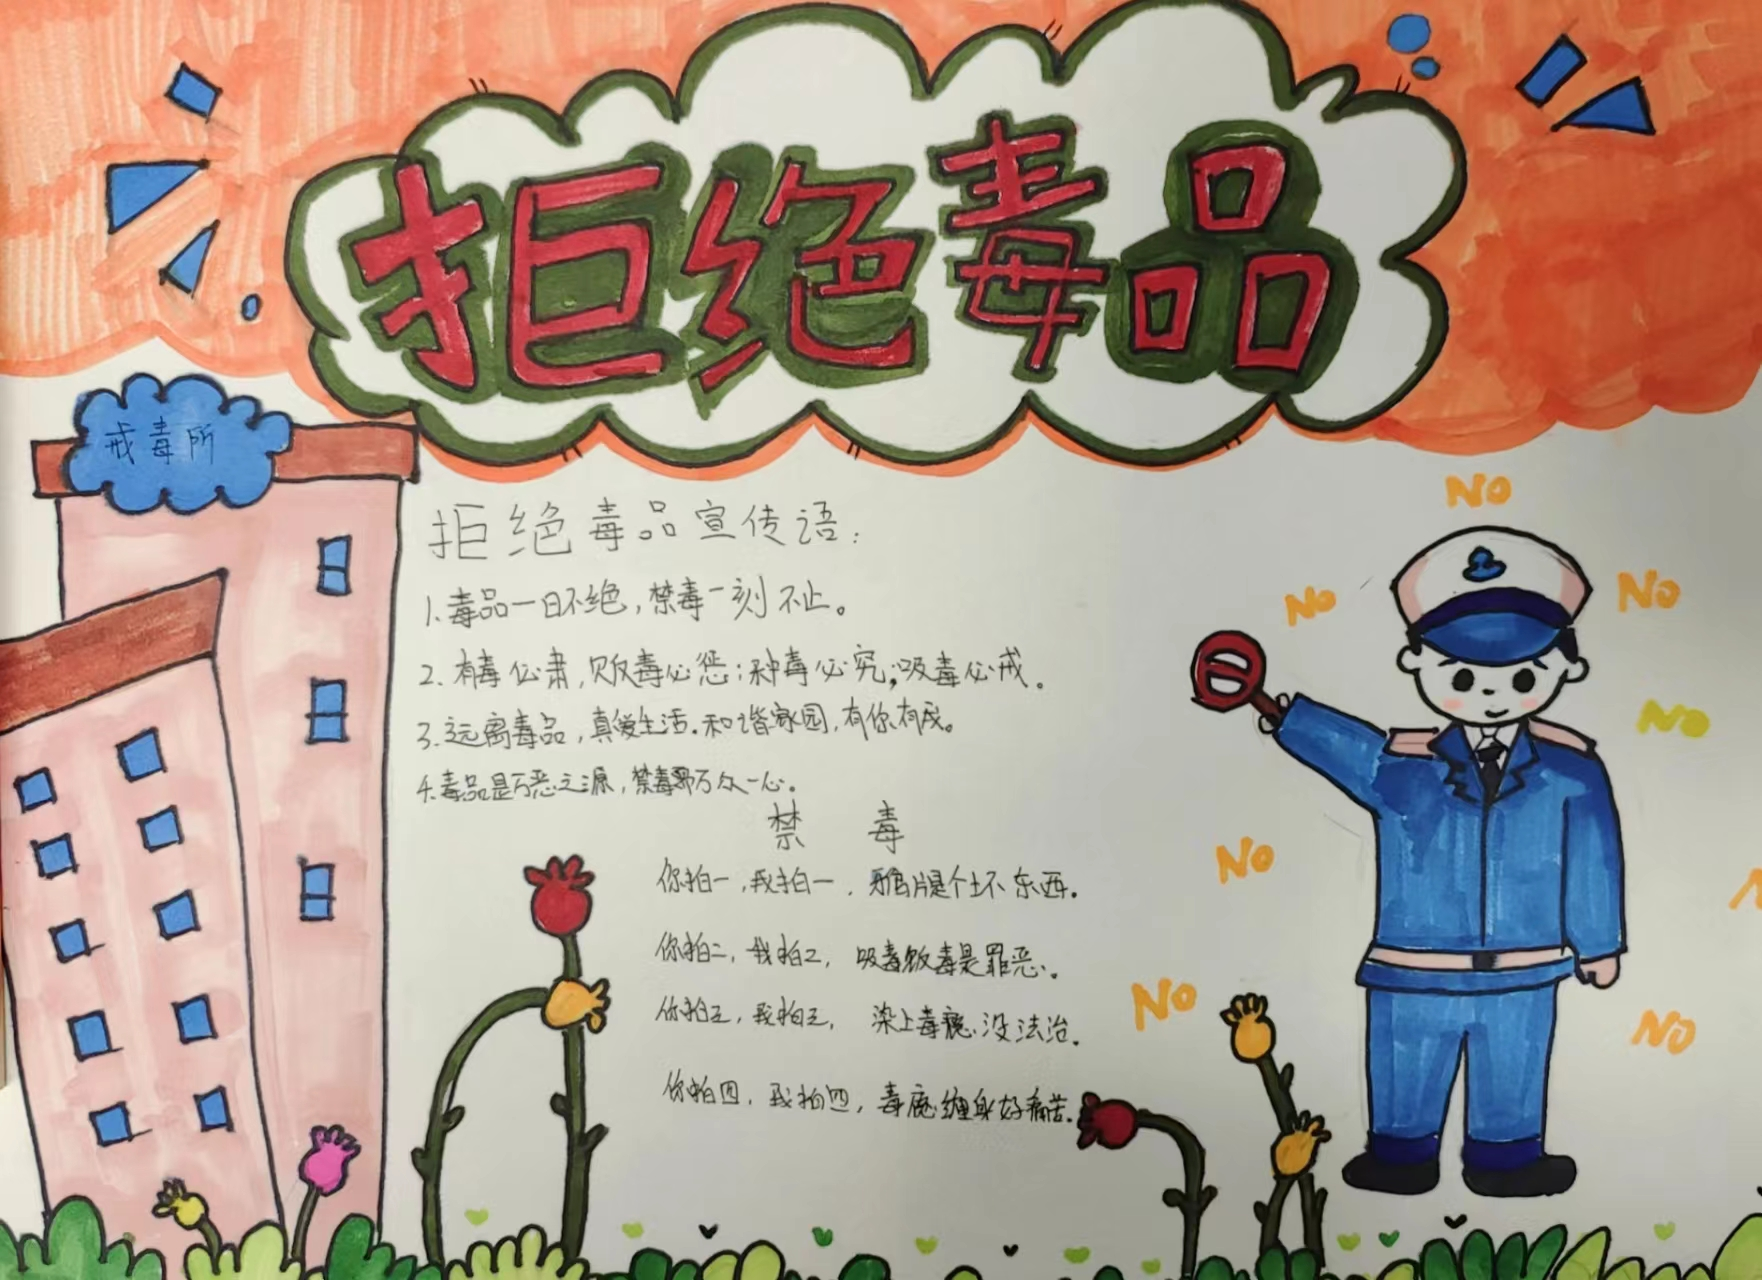 拒绝毒品
戒毒所
拒绝毒品宣传语：
1.毒品一日不绝，禁毒一刻不止。
2.有毒必肃，贩毒必惩；种毒必究；吸毒必戒。
3.远离毒品，真爱生活.和谐家园，有你有我。
4.毒品是万恶之源，禁毒需万众一心。
禁毒
你拍一，我拍一，鸦片是个坏东西。
你拍二，我拍二，吸毒贩毒是罪恶。
你拍三，我拍三，染上毒瘾没法治。
你拍四，我拍四，毒魔缠身好痛苦。
NO
NO
NO
NO
NO
NO
NO